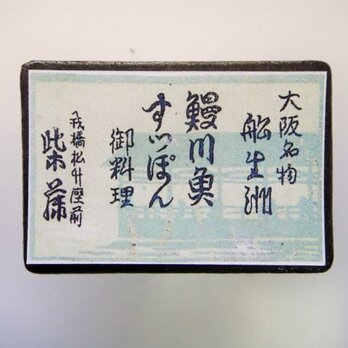 大阪名物
船生洲
鰻川魚
すっぽん
御料理
戎橋松竹座前
柴藤